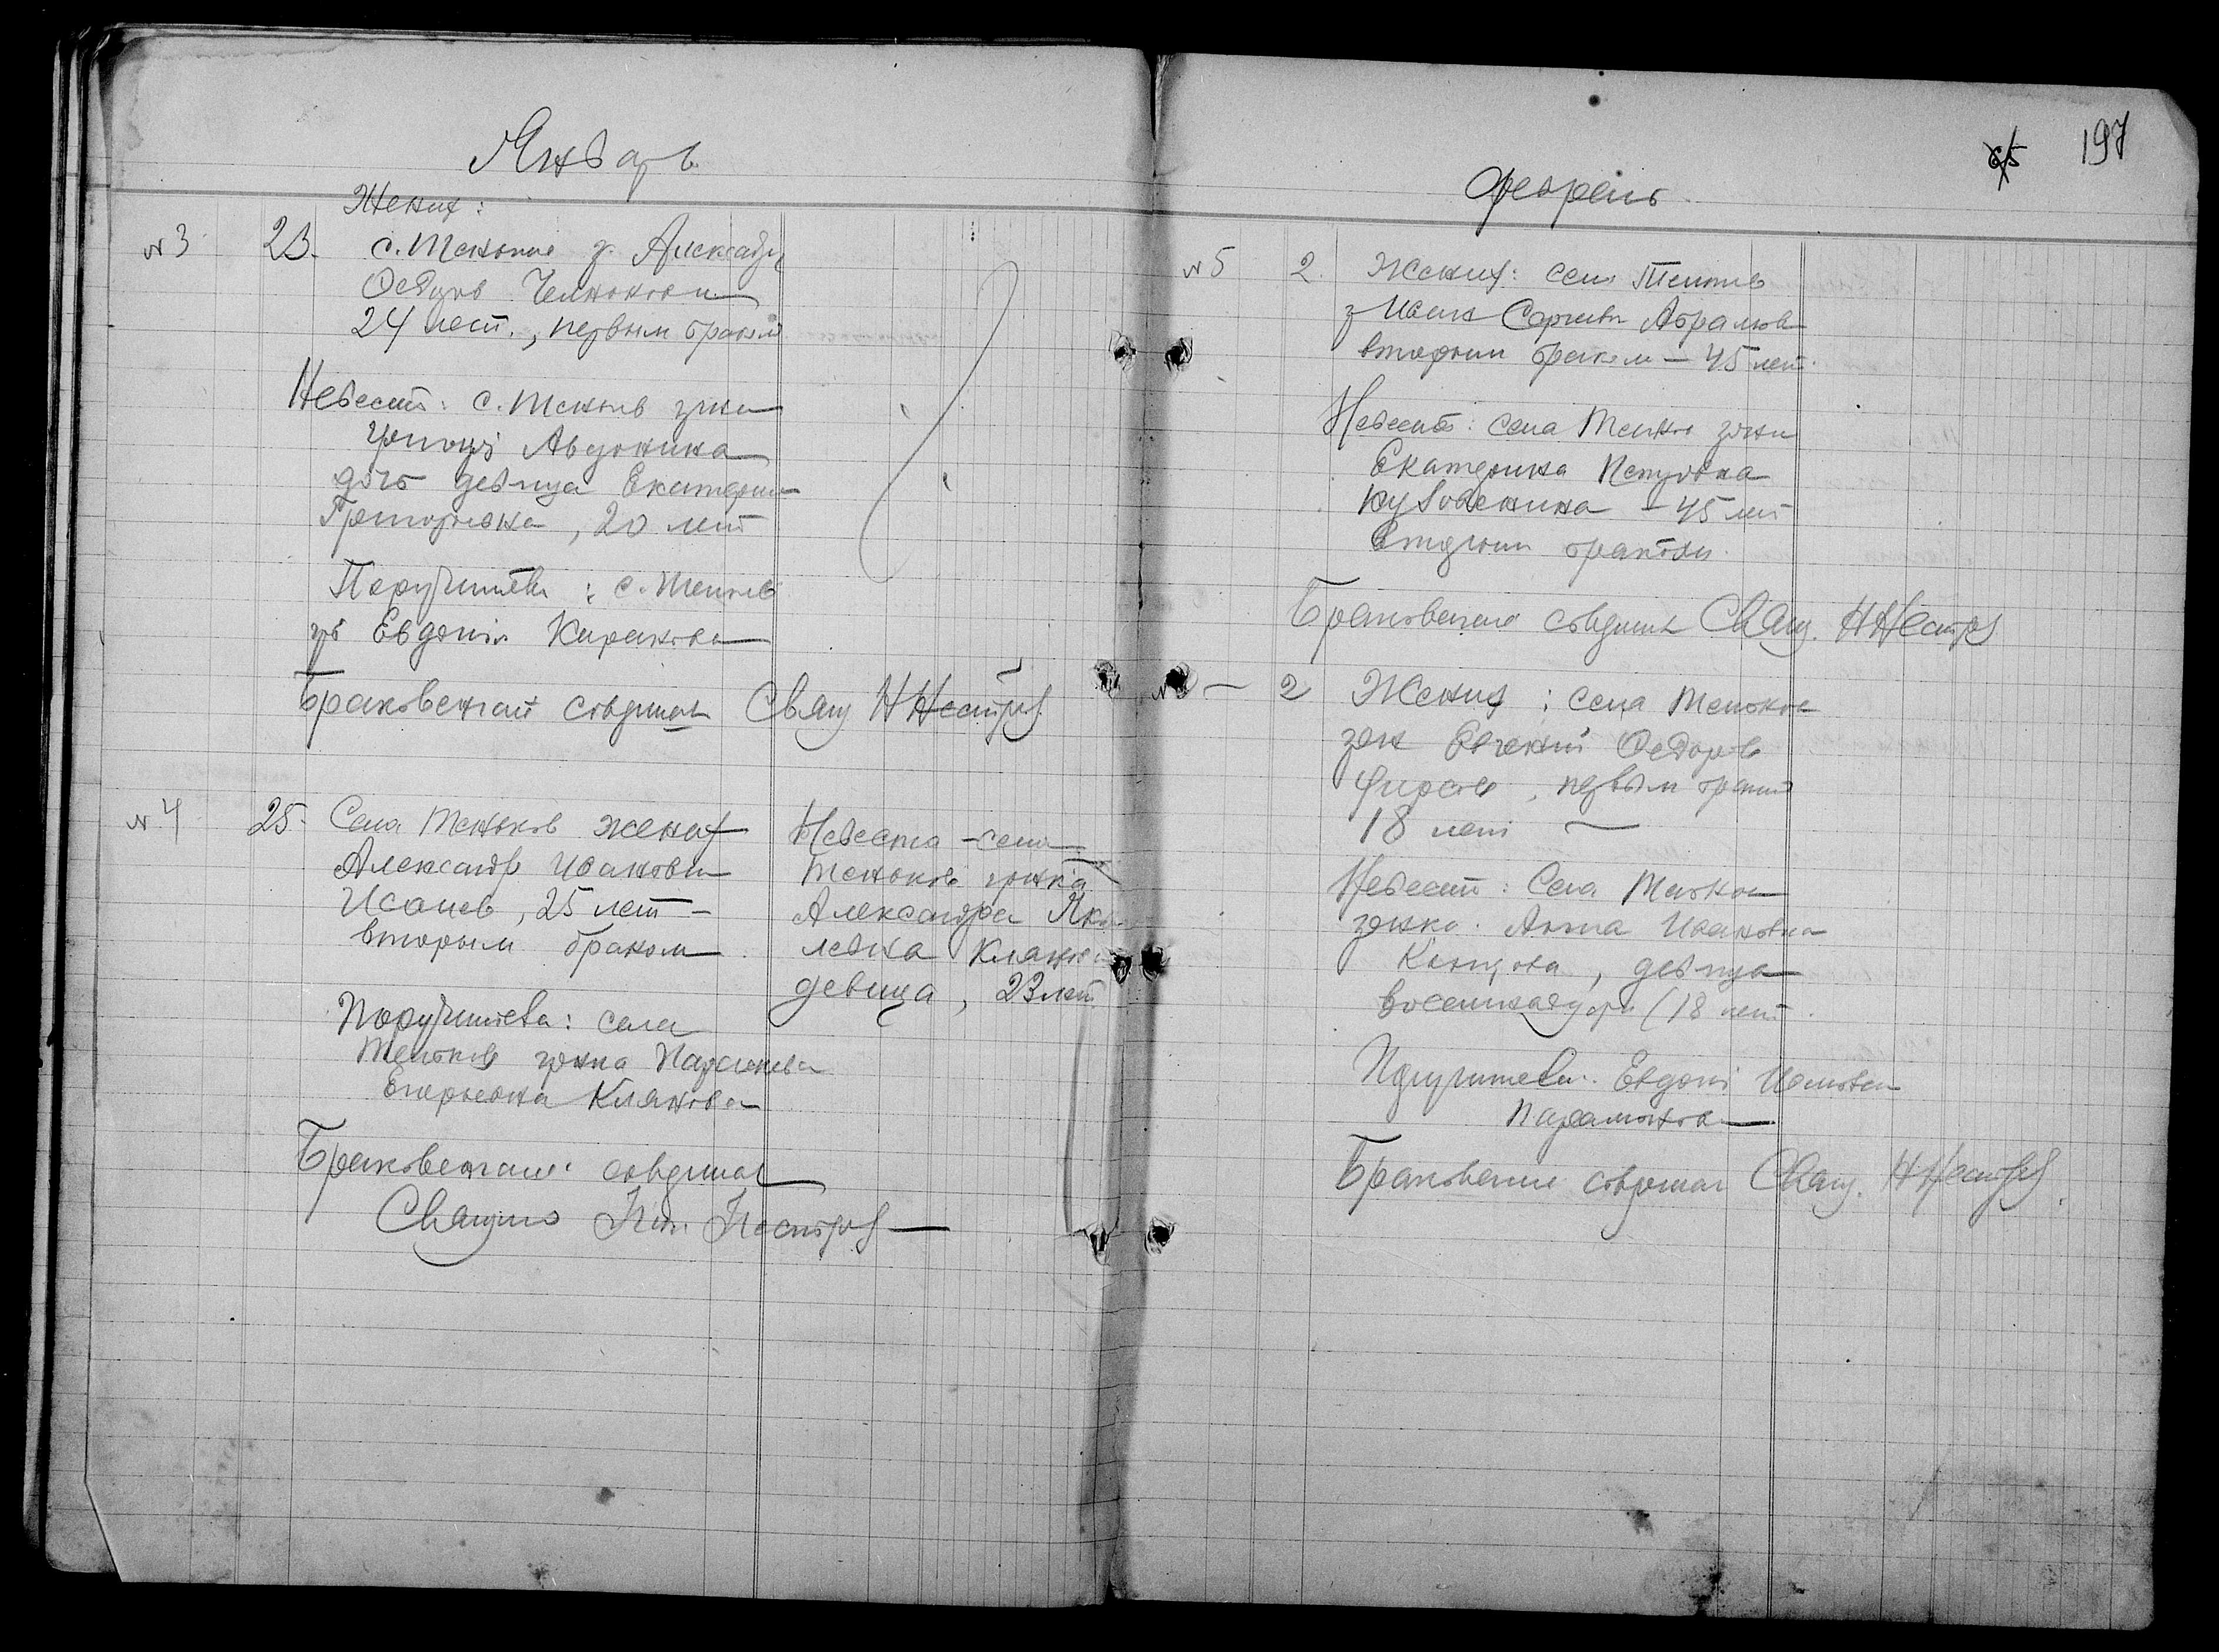 Январь
Жених:
№ 3 23. с. Теньков г. Александр
Федоров Челноков
24 лет., первым браком
Невеста: с. Теньков гжка
Авдокина
дочь девица Екатерина
Григорьевна, 20 лет
Поручители: с. Теньков
Евдокия
Браковенчание совершал Свящ Н Нестеров
№ 4 25. Села Теньков жених
Александр Иванович
Исаев, 25 лет –
вторым браком
Невеста – села
Теньков гржка
Александра Яков
левна Клянов
девица, 23 лет
Поручители: села
Теньков гржка Парасковья
Егорьевна Клянова
Браковенчание совершал
Священно Нестеров
65 197
Февраль
№ 5 2. Жених: села Теньков
г Иван Сергеевич Абрамов
вторым браком – 45 лет.
Невеста: села Теньков гржка
Екатерина Петровна
– 45 лет
вторым браком
Браковенчание совершал Свящ. Н Нестеров
№ – 2 Жених: села Теньков
гржн Евгений Федоров
Фирсов, первым браком
18 лет
Невеста: Села Теньков
гржка. Анна Ивановна
девица
восемнадцати (18 лет.
Поручители. Евдокия Ивановна
Парамонова
Браковенчание совершал Свящ. Н Нестеров.